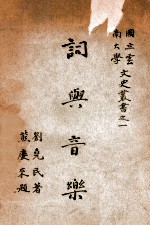 國立雲南大學文史叢書之一
詞與音樂
劉堯民著
熊慶來題